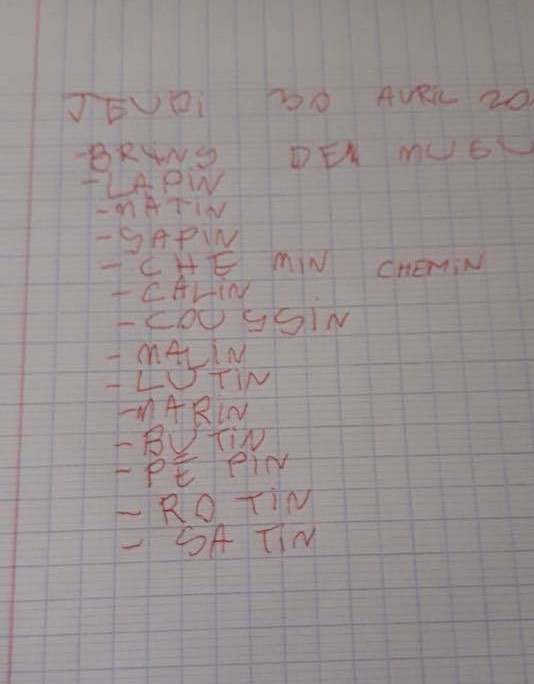 JEUDI 30 AVRIL 20
-BRINS DE MUGU
-LAPIN
-MATIN
-SAPIN
- CHE MIN CHEMIN
- CALIN
- COUSSIN
- MALIN
- LUTIN
-MARIN
- BUTIN
- PE PIN
- RO TIN
- SA TIN